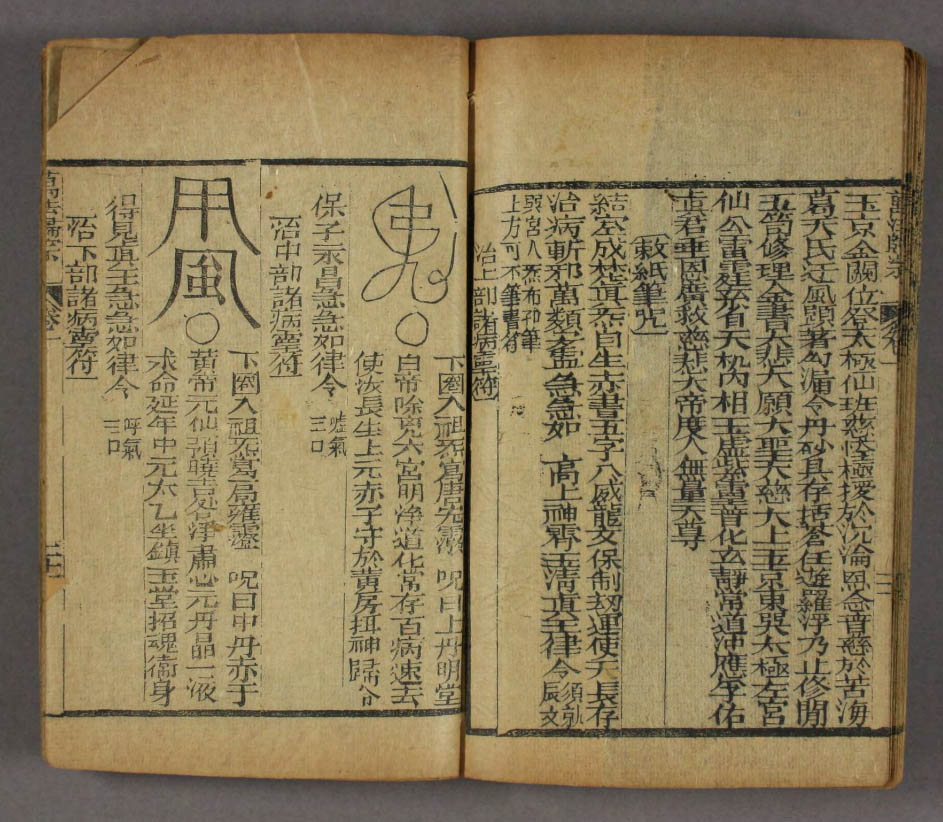 萬法歸宗
玉京金闕位登太極仙班慈極援於沉淪恩念普慈於苦海
葛天氏迂風顯著勾漏令丹砂具存括蒼任遊羅浮乃止修閒
玉笥修理金書大悲大願大聖大慈太上玉京東吳太極左宮
仙公雷霆玄省天机內相玉虛紫靈普化玄靜常道冲應孚佑
真君垂恩廣救慈悲大帝度人無量天尊
敕紙筆咒
結空成梵真炁自生赤書五字八威龍文保制刧運使天長存
治病斬邪萬類 急急如 高上神霄玉清真王律令 須就辰文
巽宮入炁布在筆
上方可不筆書符
治上部諸病靈符
下圈入祖炁葛唐先靈 咒曰上丹明堂
白帝 六宮明淨道化常存百病速去
使汝長生上元赤子守於黄房扭神歸谷
保子永昌急急如律令 噓氣三口
治中部諸病靈符
甲風
下圈入祖炁葛局雍靈 咒曰中丹赤子
黄帝元仙預曉吉咎淨肅心元丹晶一液
求命延年中元太乙坐鎮玉堂招魂衛身
得見道主急急如律令 呼氣三口
治下部諸病靈符
萬法歸宗